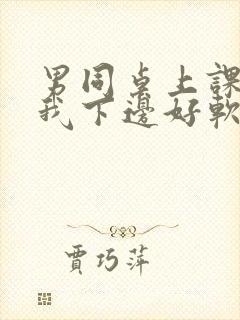 男同桌上課
我下邊好軟
賈巧萍